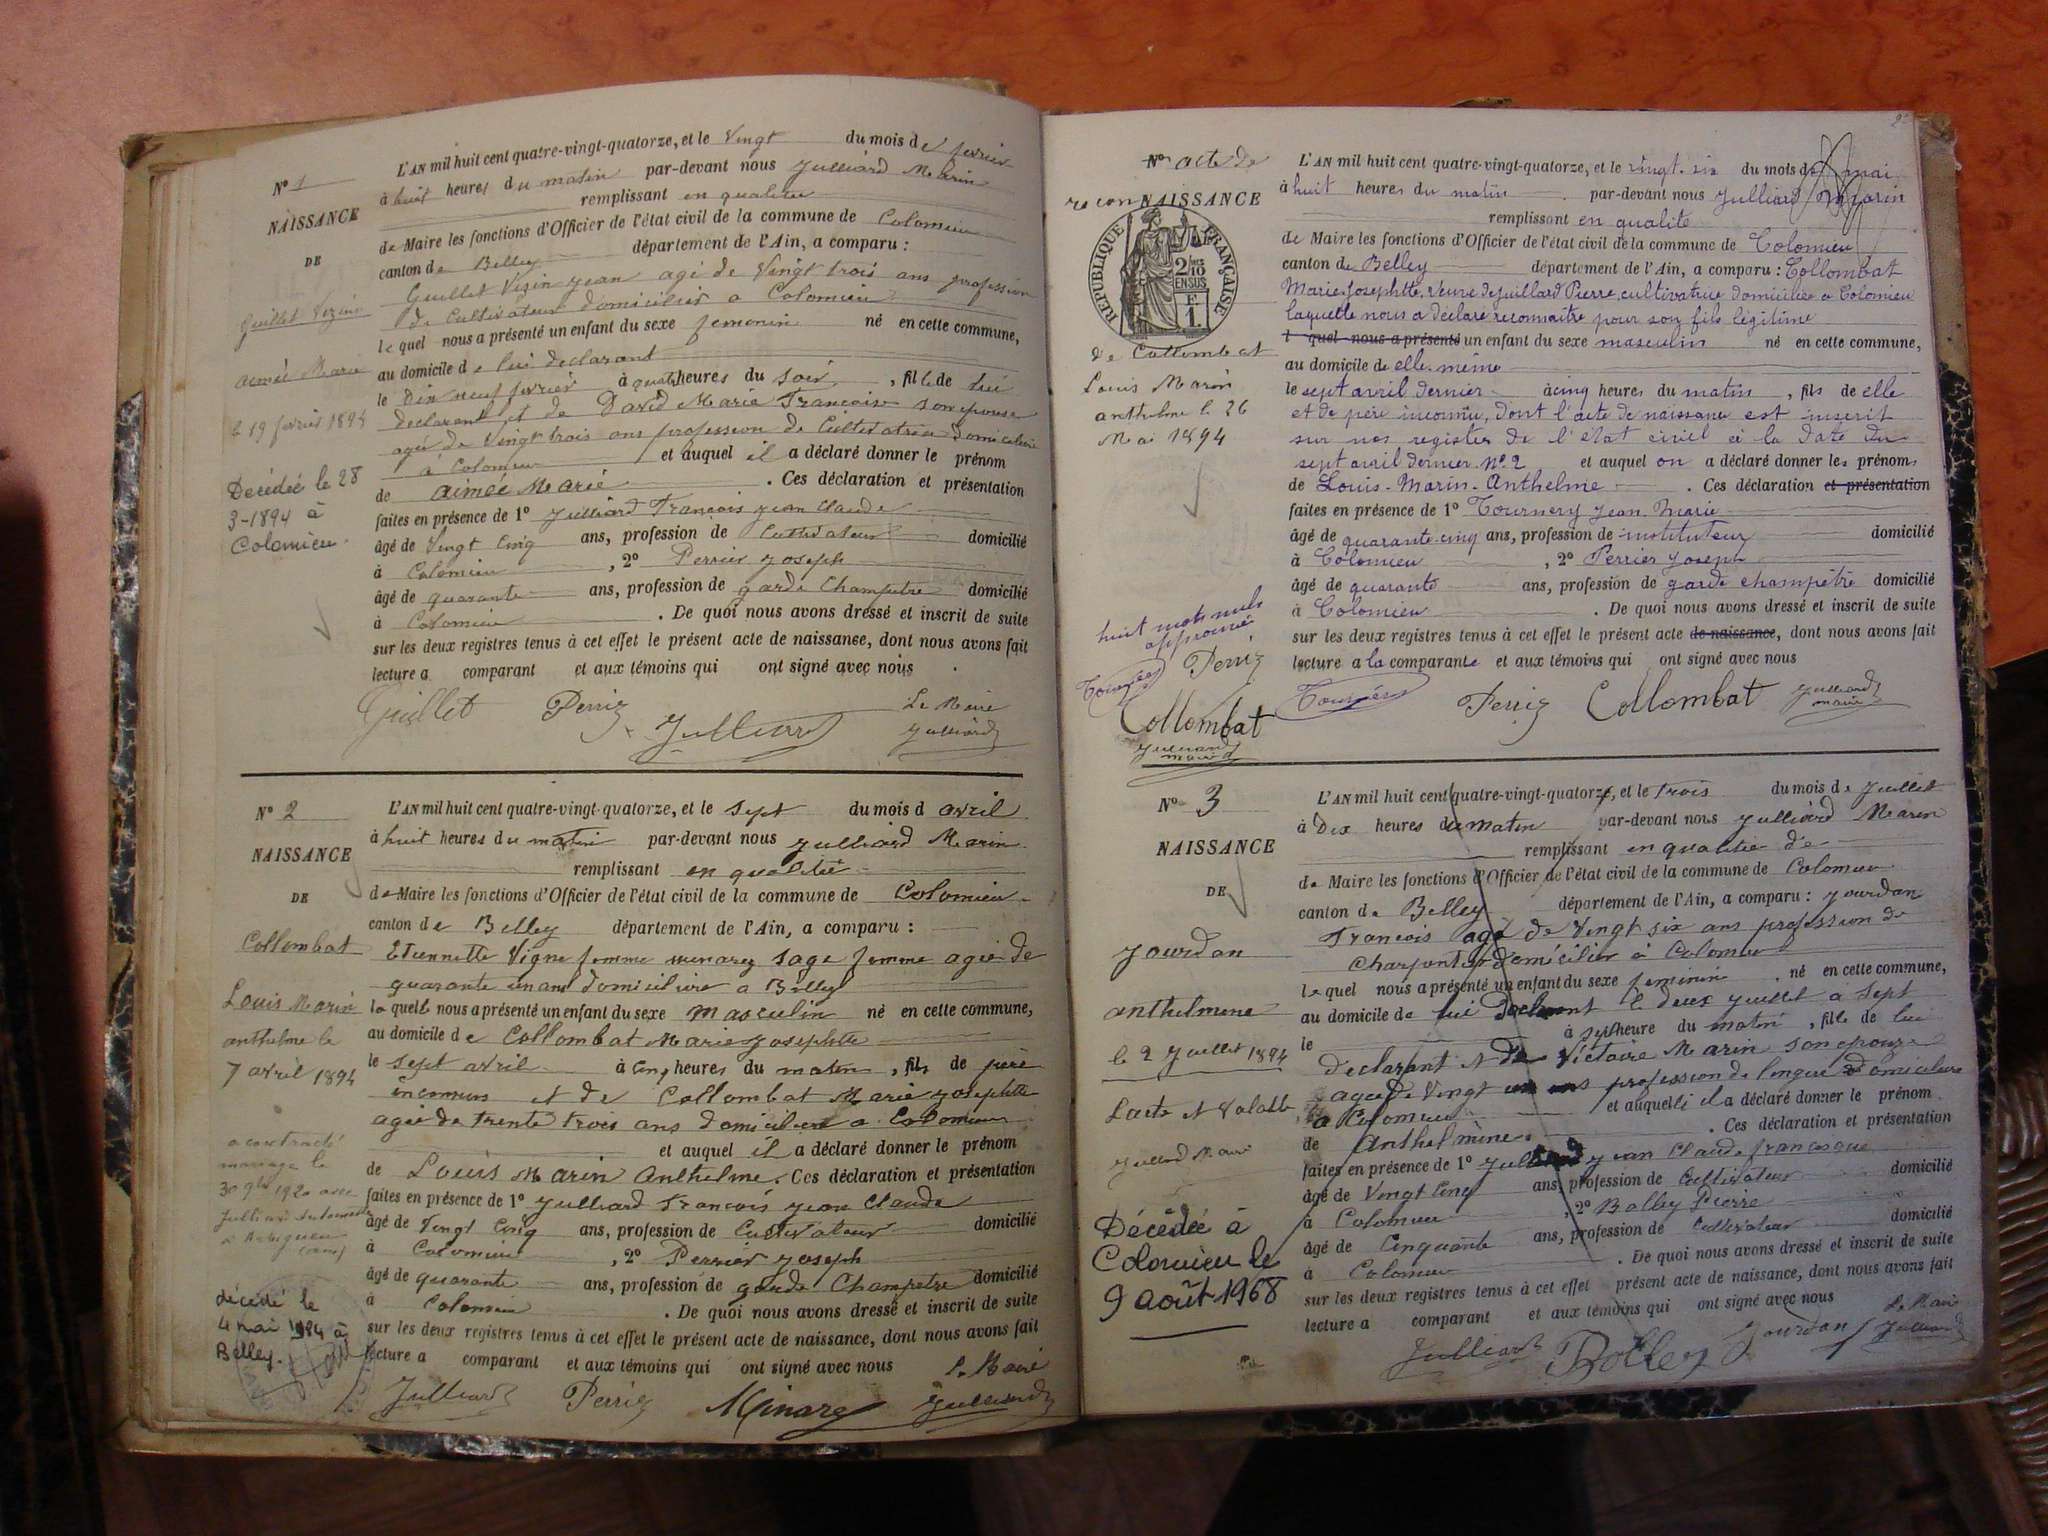 N° 1
NAISSANCE
DE
Guillet Vizin
aimée Marie
le 19 fevrier 1894
Decédée le 28
3-1894 à
Colomieu.
L'AN mil huit cent quatre-vingt-quatorze, et le Vingt du mois de fevrier
à huit heures du matin par-devant nous Julliard Marin
remplissant en qualité
de Maire les fonctions d'Officier de l'état civil de la commune de Colomieu
canton de Belley département de l'Ain, a comparu :
Guillet Vizin jean agé de Vingt trois ans profession
de Cultivateur domicilier a Colomieu
lequel nous a présenté un enfant du sexe femenin né en cette commune,
au domicile de lui declarant
le Dix neuf fevrier à quatre heures du soir, fille de lui
declarant et de David Marie Francoise son epouse
agée de Vingt trois ans profession de Cultivatrice domiciliée
a Colomieu et auquel il a déclaré donner le prénom
de aimée Marie. Ces déclaration et présentation
faites en présence de 1° Julliard Francois jean Claude
âgé de Vingt Cinq ans, profession de Cultivateur domicilié
à Colomieu, 2° Perrier Joseph
âgé de quarante ans, profession de garde Champetre domicilié
à Colomieu. De quoi nous avons dressé et inscrit de suite
sur les deux registres tenus à cet effet le présent acte de naissance, dont nous avons fait
lecture a comparant et aux témoins qui ont signé avec nous.
Guillet Julliard Le Maire
Julliard
N° 2
NAISSANCE
DE
Collombat
Louis Marin
anthelme le
7 avril 1894
a contracté
mariage le
30 1920 avec
Julliard
décédé le
4 mai 1984 à
Belley.
L'AN mil huit cent quatre-vingt-quatorze, et le sept du mois d avril
à huit heures du matin par-devant nous Julliard Marin
remplissant en qualité
de Maire les fonctions d'Officier de l'état civil de la commune de Colomieu
canton de Belley département de l'Ain, a comparu :
Etiennette Vigne femme minarez sage femme agée de
quarante un ans domiciliée a Belley
laquelle nous a présenté un enfant du sexe Masculin né en cette commune,
au domicile de Collombat Marie Josephtte
le sept avril à Cinq heures du matin, fils de père
inconnu et de Collombat Marie Josephtte
agée de trente trois ans domiciliée a Colomieu
et auquel il a déclaré donner le prénom
de Louis Marin Anthelme. Ces déclaration et présentation
faites en présence de 1° Julliard Francois jean Claude
âgé de Vingt Cinq ans, profession de Cultivateur domicilié
à Colomieu, 2° Perrier Joseph
âgé de quarante ans, profession de garde Champetre domicilié
à Colomieu. De quoi nous avons dressé et inscrit de suite
sur les deux registres tenus à cet effet le présent acte de naissance, dont nous avons fait
lecture a comparant et aux témoins qui ont signé avec nous Le Maire
Julliard Minarez Julliard
2
N° acte de
reconNAISSANCE
RÉPUBLIQUE FRANÇAISE
2/10 EN SUS
F 1.
de Collombat
Louis Marin
anthelme le 26
Mai 1894
huit mots nuls
approuvé
Collombat
Julliard
L'AN mil huit cent quatre-vingt-quatorze, et le vingt-six du mois de mai
à huit heures du matin par-devant nous Julliard Marin
remplissant en qualité
de Maire les fonctions d'Officier de l'état civil de la commune de Colomieu
canton de Belley département de l'Ain, a comparu : Collombat
Marie Josephtte, Veuve de Juillard Pierre, cultivatrice domiciliée à Colomieu
laquelle nous a déclaré reconnaître pour son fils légitime
l quel nous a présenté un enfant du sexe masculin né en cette commune,
au domicile de elle-même
le sept avril dernier à cinq heures du matin, fils de elle
et de père inconnu, dont l'acte de naissance est inscrit
sur nos registres de l'état civil à la date du
sept avril dernier N° 2 et auquel on a déclaré donner les prénoms
de Louis-Marin-Anthelme. Ces déclaration et présentation
faites en présence de 1° Tournery Jean Marie
âgé de quarante-cinq ans, profession de instituteur domicilié
à Colomieu, 2° Perrier Joseph
âgé de quarante ans, profession de garde champêtre domicilié
à Colomieu. De quoi nous avons dressé et inscrit de suite
sur les deux registres tenus à cet effet le présent acte de naissance, dont nous avons fait
lecture a la comparante et aux témoins qui ont signé avec nous
Collombat Julliard
N° 3
NAISSANCE
DE
Jourdan
anthelmene
le 2 Juillet 1894
Lacte et Valable
Décédée à
Colomieu le
9 août 1968
L'AN mil huit cent quatre-vingt-quatorze, et le trois du mois de Juillet
à Dix heures du matin par-devant nous Julliard Marin
remplissant en qualitée de
de Maire les fonctions d'Officier de l'état civil de la commune de Colomieu
canton de Belley département de l'Ain, a comparu : Jourdan
Francois agé de Vingt six ans profession de
Charpentier domicilier à Colomieu
lequel nous a présenté un enfant du sexe feminin né en cette commune,
au domicile de lui declarant le deux Juillet a sept
le à sept heure du matin, fille de lui
declarant et de Victoire Marin son epouze
agée de Vingt ans profession de lingere domiciliée
a Colomieu et auquelle il a déclaré donner le prénom
de Anthelmine. Ces déclaration et présentation
faites en présence de 1° Julliard jean Claude francoque
âgé de Vingt Cinq ans, profession de Cultivateur domicilié
à Colomieu, 2° Bolley Pierre
âgé de Cinquante ans, profession de Cultivateur domicilié
à Colomieu. De quoi nous avons dressé et inscrit de suite
sur les deux registres tenus à cet effet présent acte de naissance, dont nous avons fait
lecture a comparant et aux témoins qui ont signé avec nous Le Maire
Julliard Bolley Jourdan Julliard